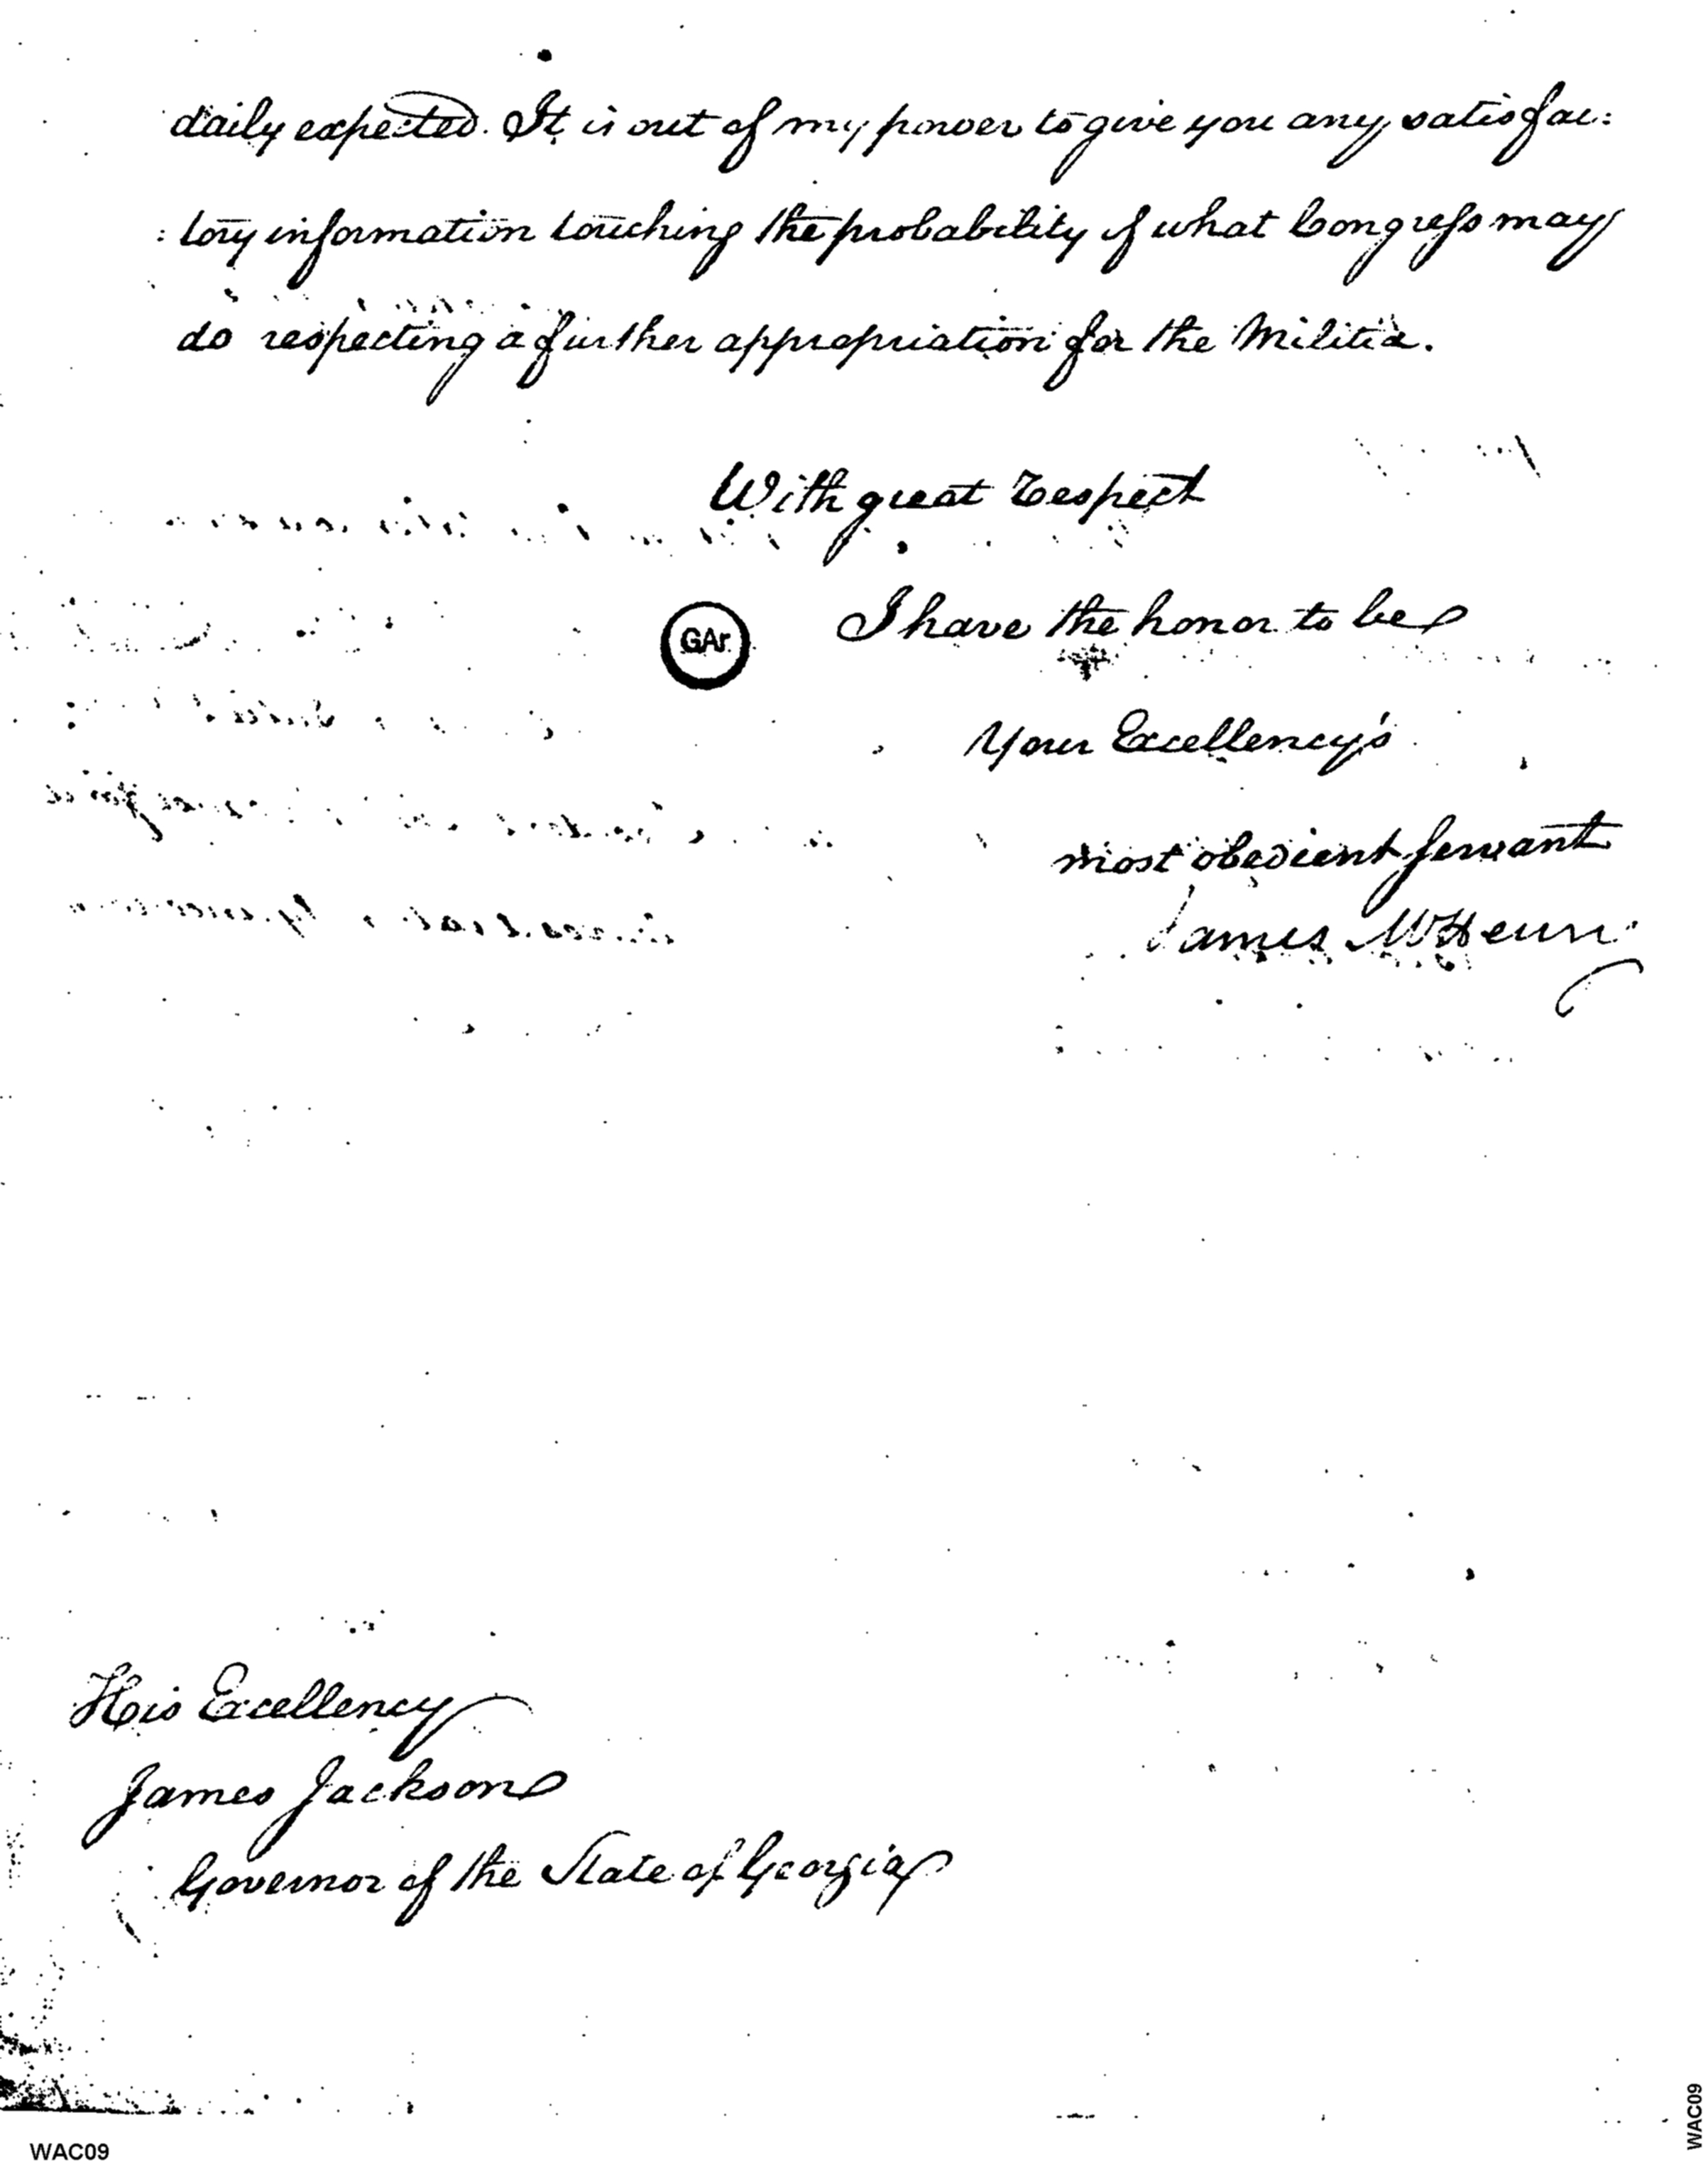 daily expected. It is out of my power to give you any satisfac:
: tory information touching the probability of what Congress may
do respecting a further appropriation for the Militia.
With great respect
I have the honor to be
GAr
Your Excellency's
most obedient servant
James McHenry
His Excellency
James Jackson
Governor of the State of Georgia
WAC09
WAC09